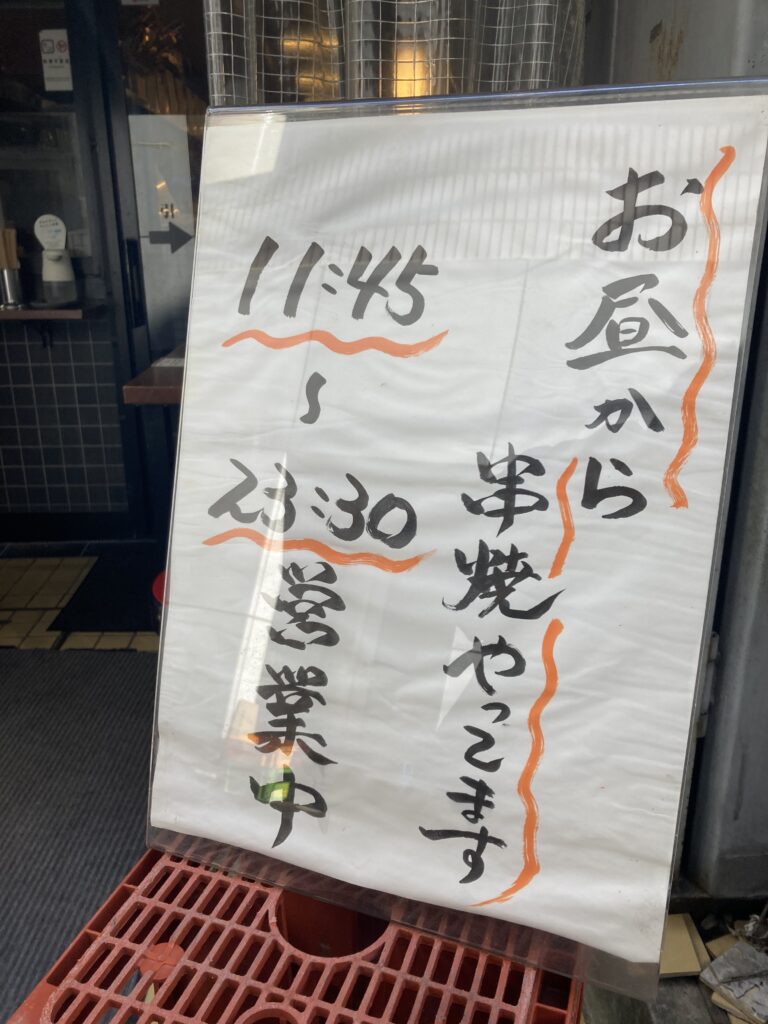 お昼から
串焼やってます
11:45
~
23:30
営業中